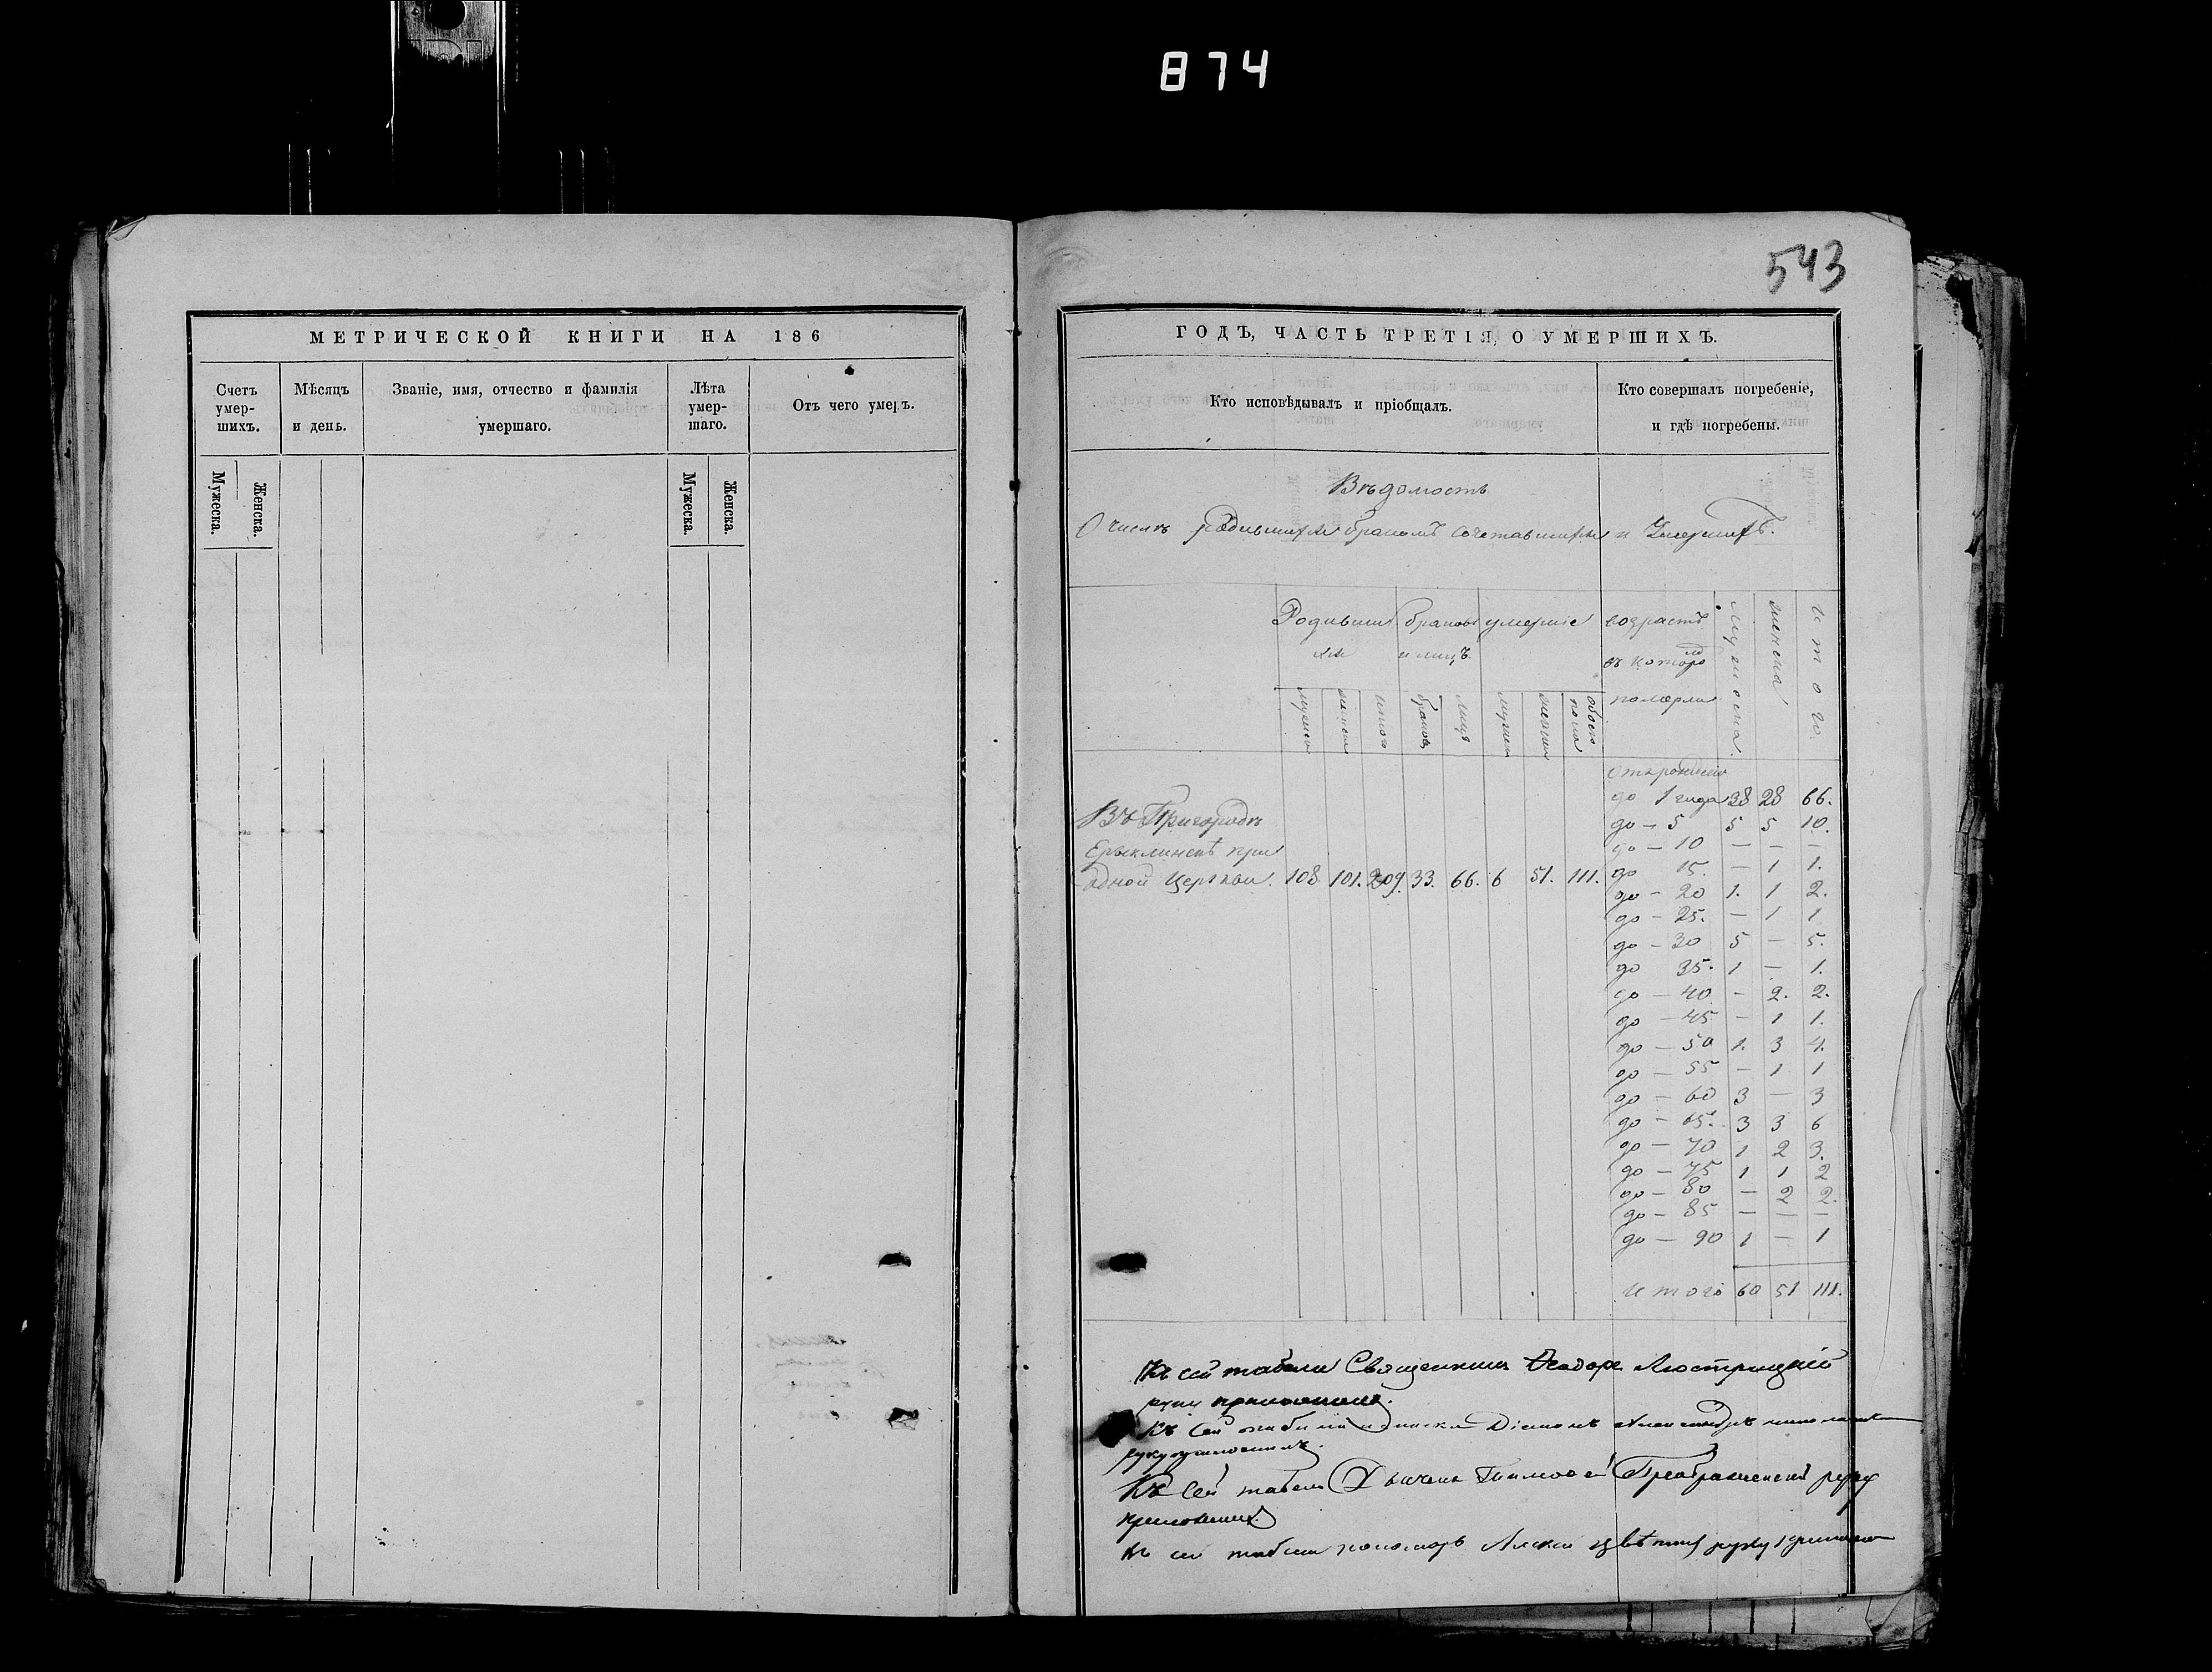 874
543
МЕТРИЧЕСКОЙ КНИГИ НА 186
Счетъ умер-шихъ.
Мѣсяцъ и день.
Званіе, имя, отчество и фамилія умершаго.
Лѣта умер-шаго.
Отъ чего умеръ.
Мужеска.
Женска.
Мужеска.
Женска.
ГОДЪ, ЧАСТЬ ТРЕТІЯ, О УМЕРШИХЪ.
Кто исповѣдывалъ и пріобщалъ.
Кто совершалъ погребеніе, и гдѣ погребены.
Вѣдомость
О числѣ родившихся бракомъ сочетавшихся и Умершихъ.
Родивши хся
браковъ и лицъ
умершіе
возрастъ въ которомъ померли
мужеска
женска
итого
браковъ
лицъ
обоего пола
мужеска.
женска
итого.
Въ Пригородѣ
Ерыклинскѣ при
одной Церкви. 108. 101. 209. 33. 66. 6 51. 111.
отъ рожденія
до 1 года 38 28 66.
до - 5 5 5 10.
до - 10 - - -
до 15. - 1 1.
до - 20 1. 1 2.
до - 25. - 1 1
до - 30 5 - 5.
до 35. 1 - 1.
до - 40 - 2. 2.
до - 45 - 1 1.
до - 50 1. 3 4.
до - 55 - 1 1
до - 60 3 - 3
до - 65. 3 3 6
до - 70 1 2 3.
до - 75 1 1 2
до - 80 - 2 2.
до - 85 - - -
до - 90 1 - 1
Итого 60 51 111.
Къ сей табели Священникъ Ѳеодоръ
руку приложилъ.
Къ сей табели Діаконъ
руку приложилъ.
Къ сей табели Дьячекъ Тимоѳей Преображенскій руку
приложилъ
Къ сей табели пономарь руку приложилъ